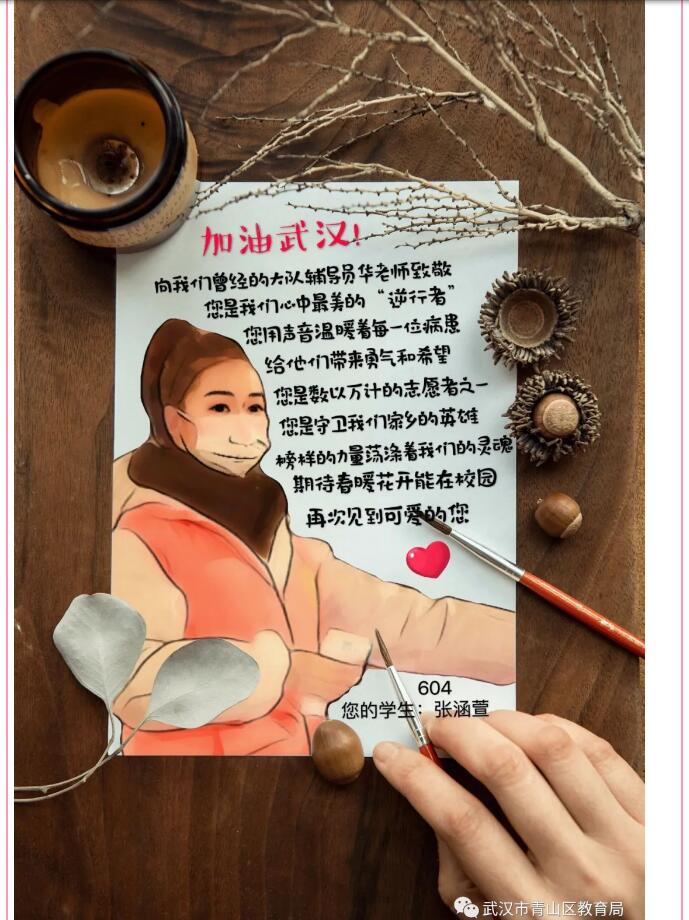 加油武汉!
向我们曾经的大队辅导员华老师致敬
您是我们心中最美的“逆行者”
您用声音温暖着每一位病患
给他们带来勇气和希望
您是数以万计的志愿者之一
您是守卫我们家乡的英雄
榜样的力量荡涤着我们的灵魂
期待春暖花开能在校园
再次见到可爱的您
604
您的学生：张涵萱
武汉市青山区教育局